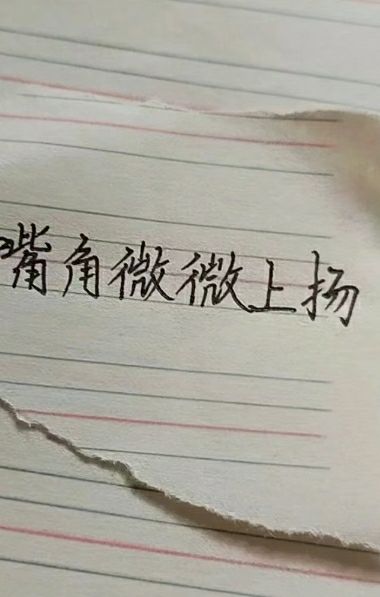 嘴角微微上扬